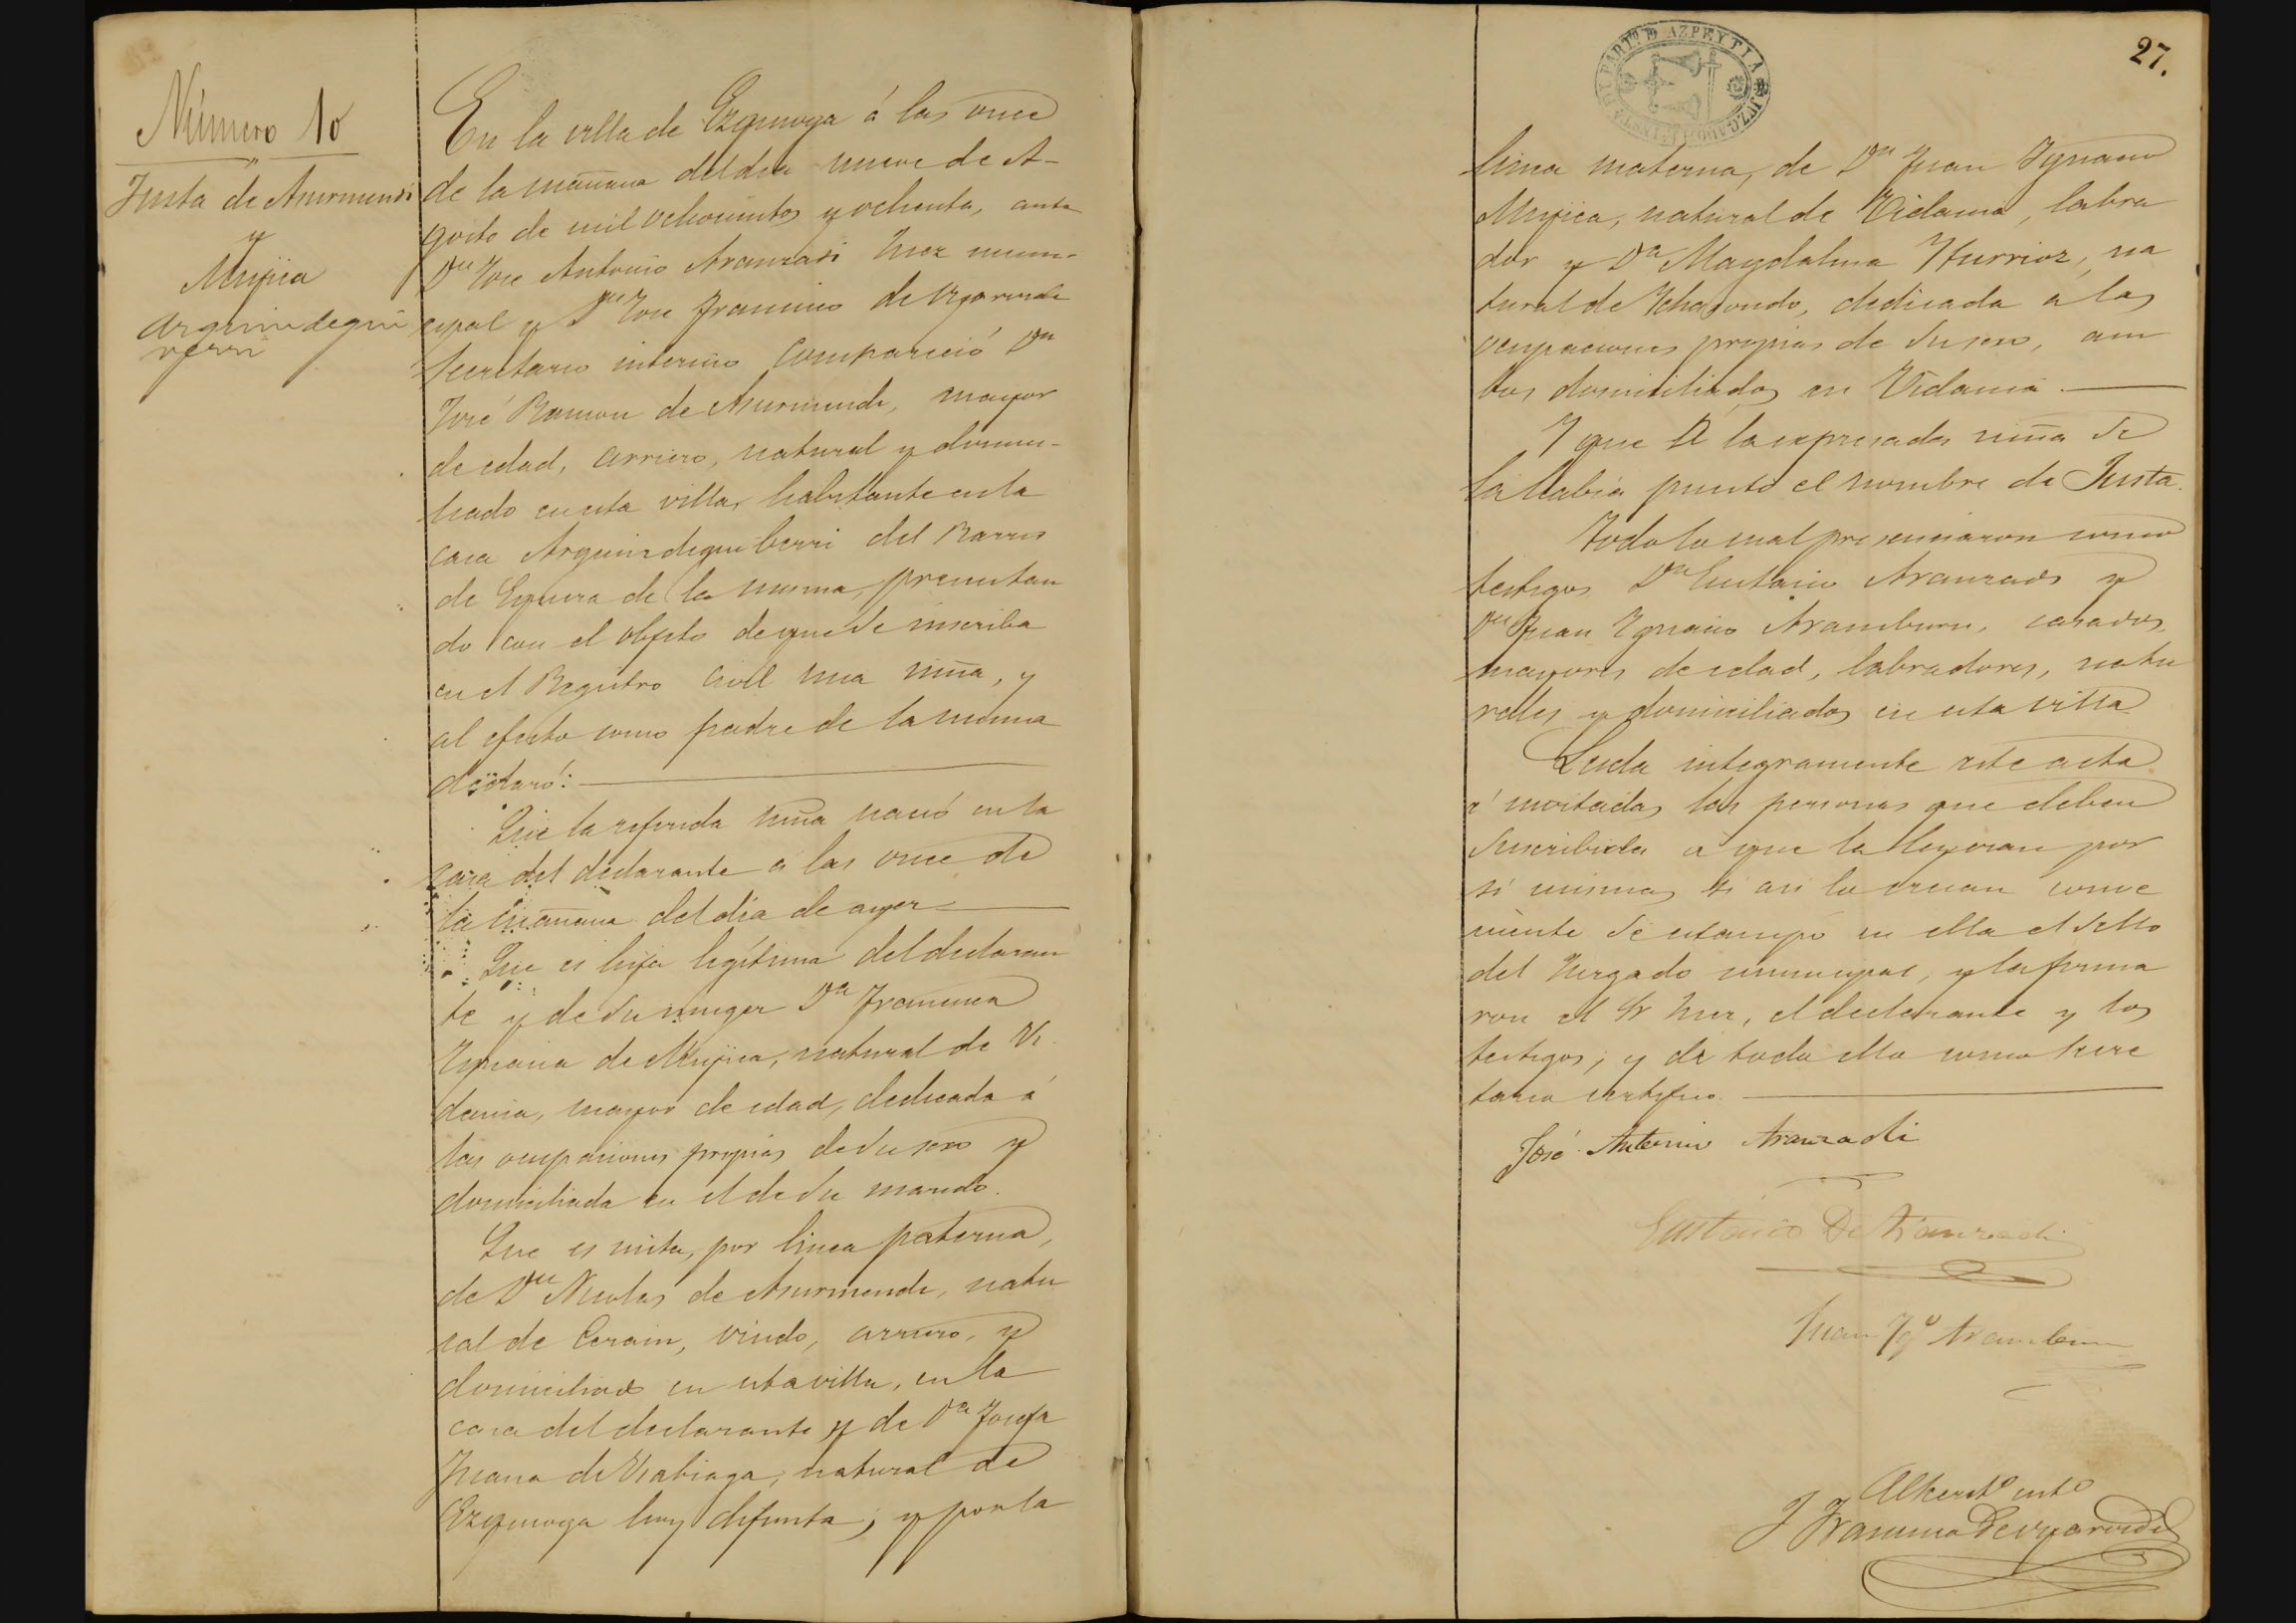 Número 10
Justa de Asurmendi
y
Mujica
Arguindegui
verri
En la villa de Ezquioga á las once
de la mañana del dia nueve de A-
gosto de mil ochocientos y ochenta, ante
Dn Jose Antonio Aranzadi Juez muni-
cipal y Dn Jose Francisco de
Secretario interino compareció Dn
José Ramon de Asurmendi, mayor
de edad, arriero, natural y domici-
liado en esta villa, habitante en la
casa Arguindeguiberri del Barrio
de de la misma, presentan
do con el objeto de que se inscriba
en el Registro civil una niña, y
al efecto como padre de la misma
declaró:
Que la referida niña nació en la
casa del declarante a las once de
la mañana del dia de ayer
Que es hija legítima del declaran
te y de su muger Da Francisca
Ygnacia de Mujica, natural de Vi
dania, mayor de edad, dedicada á
las ocupaciones propias de su sexo y
domiciliada en el de su marido.
Que es nieta, por linea paterna,
de Dn Nicolas de Asurmendi, natu
ral de Cerain, viudo, arriero, y
domiciliado en esta villa, en la
casa del declarante y de Da Josefa
Juana de Urabiaga, natural de
Ezquioga hoy difunta; y por la
27.
PARTº D AZPEYTIA
linea materna, de Dn Juan Ygnacio
Mujica, natural de Vidania, labra
dor y Da Magdalena Yturrioz, na
tural de Ychasondo, dedicada a las
ocupaciones propias de su sexo, am
bos domiciliados en Vidania.
Y que á la expresada niña se
la habia puesto el nombre de Justa.
Todo lo cual presenciaron como
testigos Dn Eustasio Aranzadi y
Dn Juan Ygnacio Aramburu, casados,
mayores de edad, labradores, natu
rales y domiciliados en esta villa
Leida integramente este acta
é invitadas las personas que deben
suscribirla a que la leyeran por
si mismas si asi lo creian conve
niente se estampó en ella el sello
del Juzgado municipal, y la firma
ron el Sr Juez, el declarante y los
testigos; y de todo ello como Secre
tario certifico.
José Antonio Aranzadi
Eustasio De Aranzadi
Juan Ygº Aramburu
J Francisco De